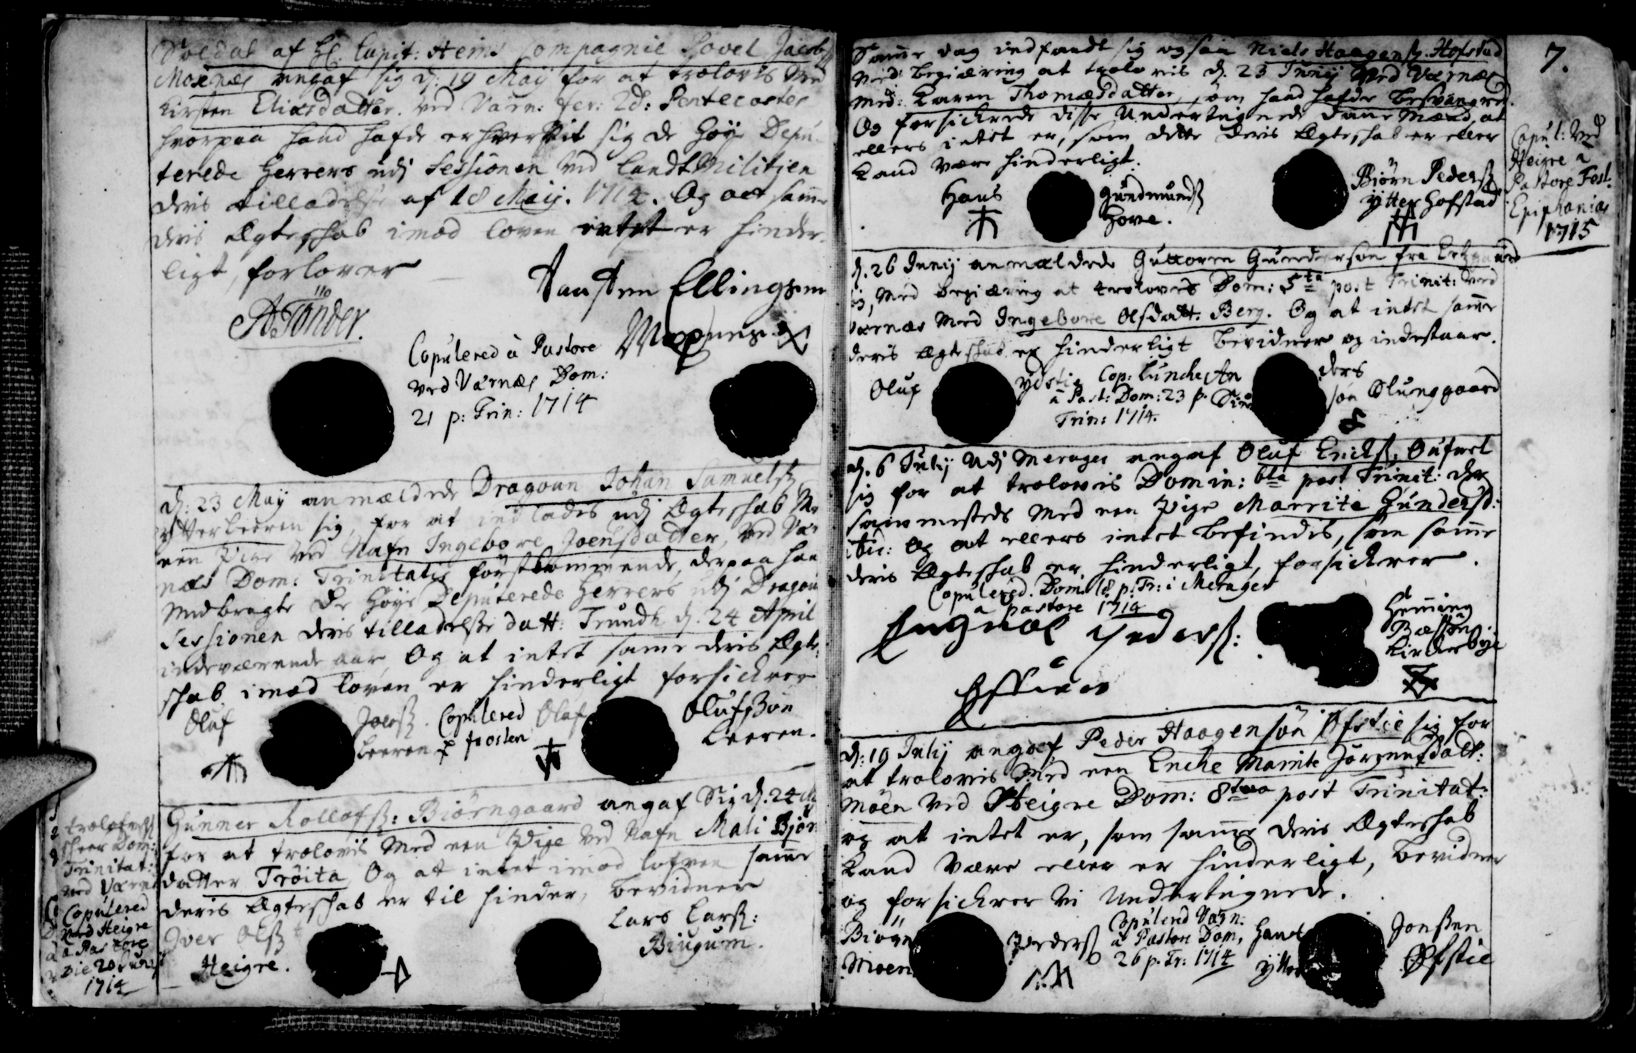 Soldat af H: Capit: Heins Compagnie Povel Jacobs
Moxnæs angaf sig d: 19 Maij for at trolovis med
Kirsten Eliasdatter. ved Værn: fer: 2d: Pentecostes
hvorpaa hand hafde erhvervit sig de Høye Depu
terede Herrers udj Sessionen ved Landt Militien
deris tilladelse af 18 Maij. 1714. Og at samme
deris Egteskab imod loven intet er hinder
ligt, forlover
Austen Ellingsen
A Tønder.
Moxnes.
Copulered à Pastore
ved Værnæs Dom:
21 p: Trin: 1714
d: 23 Maij anmældede Dragoun Johan Samuelsß
Ytterleeren sig, for at indlades udj Egteskab M
een Pige ved Nafn Ingebore Joensdatter, ved Vær
næs Dom: Trinitatis førstkommende, derpaa han
medbragte de Høye Deputerede Herrers udj Dragoun
Sessionen deris tilladelse datt: Trundh: d: 24 April
indeværende aar Og at intet samme deris Egte
skab imod loven er hinderligt forsickrer
Oluf
Joensß.
Leeren
Copulered
Oluf
Olufsßøn
Leeren.
Gunner Rollofsß: Biørngaard angaf Sig d: 24
for at trolovis Med een Pige ved Nafn Mali Biør
datter Trøita Og at intet imod lofven samme
deris Egteskab er til hinder, bevidner
Iver Olsß
Heigre.
Lars Larsß:
Biugum.
Trinitat:
ved Værn
Copulered
ved Heigre
à Pastore
Die 20
1714
7.
Samme dag indfandt sig ogsaa Niels Haagensß. Hofstad
Med begiæring at trolovis d. 23 Junij ved Værnæs
Med: Karen Thomæsdatter, som hand hafde besvangret.
Og forsickrede disse Undertegnede Danne Mænd, at
ellers intet er, som dette deris Egteskab er eller
kand være hinderligt.
Hans
Gundmundsß
Hove.
Biørn Pedersß
Ytter Hofstad
Copul: ved
Heigre a
Pastore Fest.
Epiphanias
1715
d. 26 Junij anmældede Guttorm Gunderson fra
sig, med begiæring at trolovis Dom: 5ta post Trinit: ved
Værnæs Med Ingebore Olsdatt. Berg. Og at intet samme
deris Egteskab er hinderligt bevidner og indestaar.
Oluf
Ydstie
Cop: Lünche
a Past: Dom: 23 p.
Trin: 1714.
An
ders
søn Olunsgaard
d. 6 Julij udj Merager angaf Oluf Ericksß. Oufvel
sig for at trolovis Domin: 6ta post Trinit: der
sammesteds Med een Pige Marrite Gundersd:
Og at ellers intet befindes, som samme
deris Egteskab er hinderligt, forsickrer.
Copulered. Dom. 18 p: Tr: i Merager
a pastore 1714
Ingval Pedersß:
Henning
Kirckebye
d: 19 Julij angaf Peder Haagensøn Øfstie sig for
at trolovis Med een Encke Marrite Jørgensdatt:
Moen ved Heigre Dom: 8tava post Trinitat:
og at intet er, som samme deris Egteskab
kand være eller er hinderligt, bevidner
og forsickrer vi Undertegnede.
Biørn
Moen
Pedersß
Copulered Værn:
a Pastore Dom,
26 p. Tr: 1714
Hans
Ytter
Jonsßen
Øfstie